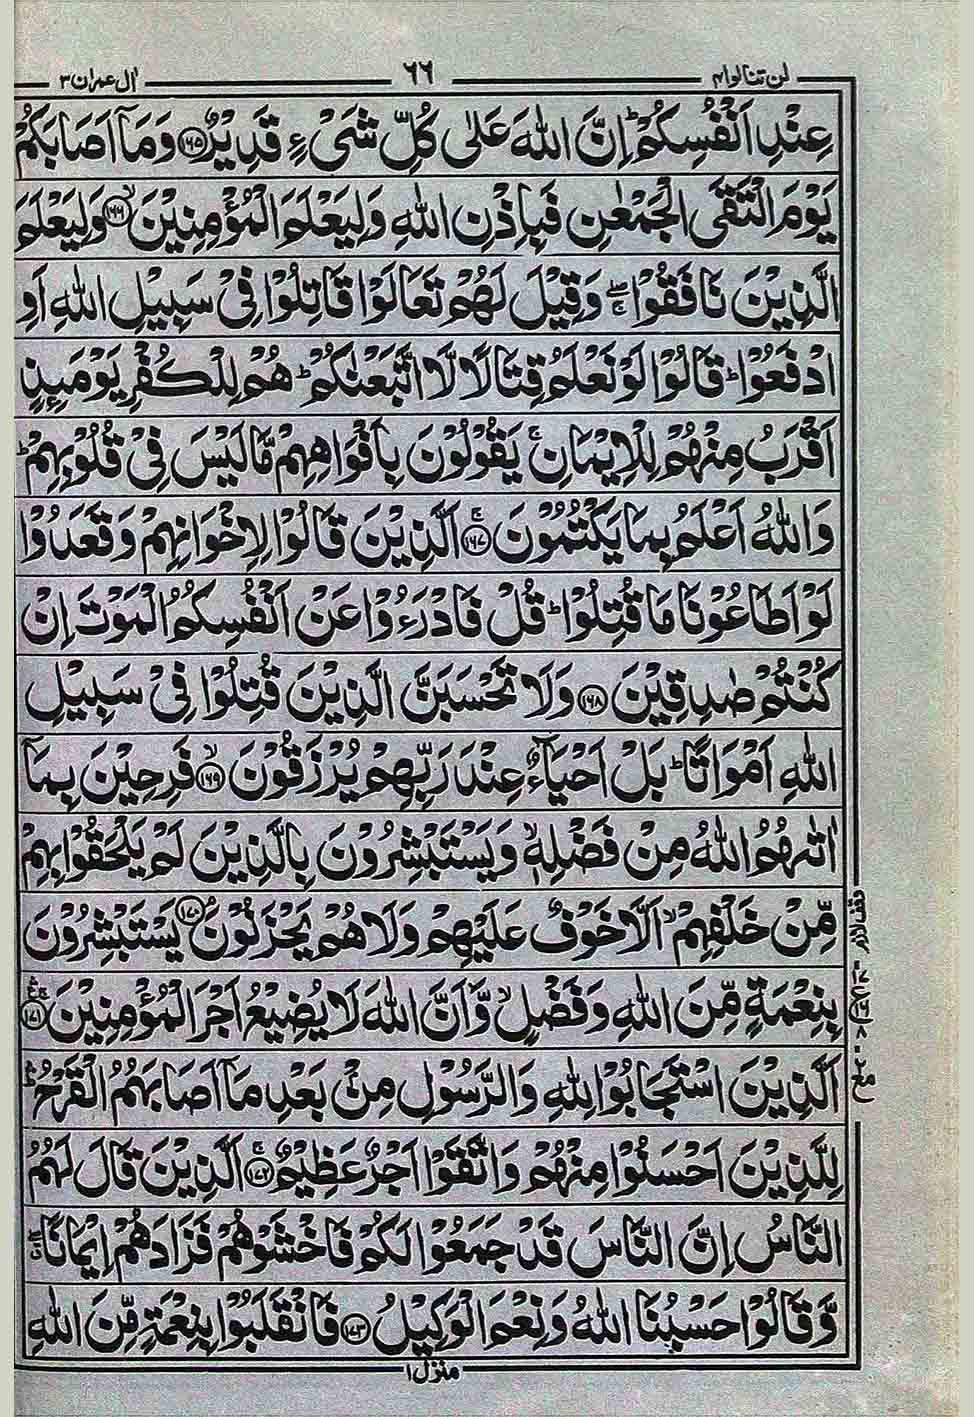 لن تنالوا ۴ ۶۶ اٰل عمرٰن ۳
عِنْدِ اَنْفُسِكُمْ ؕ اِنَّ اللّٰهَ عَلٰى كُلِّ شَیْءٍ قَدِیْرٌ ۱۶۵ وَمَاۤ اَصَابَكُمْ
یَوْمَ الْتَقَى الْجَمْعٰنِ فَبِاِذْنِ اللّٰهِ وَلِیَعْلَمَ الْمُؤْمِنِیْنَ ۱۶۶ۙ وَلِیَعْلَمَ
الَّذِیْنَ نَافَقُوْا ۖۚ وَقِیْلَ لَهُمْ تَعَالَوْا قَاتِلُوْا فِیْ سَبِیْلِ اللّٰهِ اَوِ
ادْفَعُوْا ؕ قَالُوْا لَوْ نَعْلَمُ قِتَالًا لَّا اتَّبَعْنٰكُمْ ؕ هُمْ لِلْكُفْرِ یَوْمَىِٕذٍ
اَقْرَبُ مِنْهُمْ لِلْاِیْمَانِ ۚ یَقُوْلُوْنَ بِاَفْوَاهِهِمْ مَّا لَیْسَ فِیْ قُلُوْبِهِمْ ؕ
وَاللّٰهُ اَعْلَمُ بِمَا یَكْتُمُوْنَ ۱۶۷ۚ اَلَّذِیْنَ قَالُوْا لِاِخْوَانِهِمْ وَقَعَدُوْا
لَوْ اَطَاعُوْنَا مَا قُتِلُوْا ؕ قُلْ فَادْرَءُوْا عَنْ اَنْفُسِكُمُ الْمَوْتَ اِنْ
كُنْتُمْ صٰدِقِیْنَ ۱۶۸ وَلَا تَحْسَبَنَّ الَّذِیْنَ قُتِلُوْا فِیْ سَبِیْلِ
اللّٰهِ اَمْوَاتًا ؕ بَلْ اَحْیَآءٌ عِنْدَ رَبِّهِمْ یُرْزَقُوْنَ ۱۶۹ۙ فَرِحِیْنَ بِمَاۤ
اٰتٰىهُمُ اللّٰهُ مِنْ فَضْلِهٖ ۙ وَیَسْتَبْشِرُوْنَ بِالَّذِیْنَ لَمْ یَلْحَقُوْا بِهِمْ
مِّنْ خَلْفِهِمْ ۙ اَلَّا خَوْفٌ عَلَیْهِمْ وَلَا هُمْ یَحْزَنُوْنَ ۱۷۰ۘ یَسْتَبْشِرُوْنَ
بِنِعْمَةٍ مِّنَ اللّٰهِ وَفَضْلٍ ۙ وَّاَنَّ اللّٰهَ لَا یُضِیْعُ اَجْرَ الْمُؤْمِنِیْنَ ۱۷۱
اَلَّذِیْنَ اسْتَجَابُوْا لِلّٰهِ وَالرَّسُوْلِ مِنْۢ بَعْدِ مَاۤ اَصَابَهُمُ الْقَرْحُ ۛؕ
لِلَّذِیْنَ اَحْسَنُوْا مِنْهُمْ وَاتَّقَوْا اَجْرٌ عَظِیْمٌ ۱۷۲ۚ اَلَّذِیْنَ قَالَ لَهُمُ
النَّاسُ اِنَّ النَّاسَ قَدْ جَمَعُوْا لَكُمْ فَاخْشَوْهُمْ فَزَادَهُمْ اِیْمَانًا ۖ
وَّقَالُوْا حَسْبُنَا اللّٰهُ وَنِعْمَ الْوَكِیْلُ ۱۷۳ فَانْقَلَبُوْا بِنِعْمَةٍ مِّنَ اللّٰهِ
منزل ۱